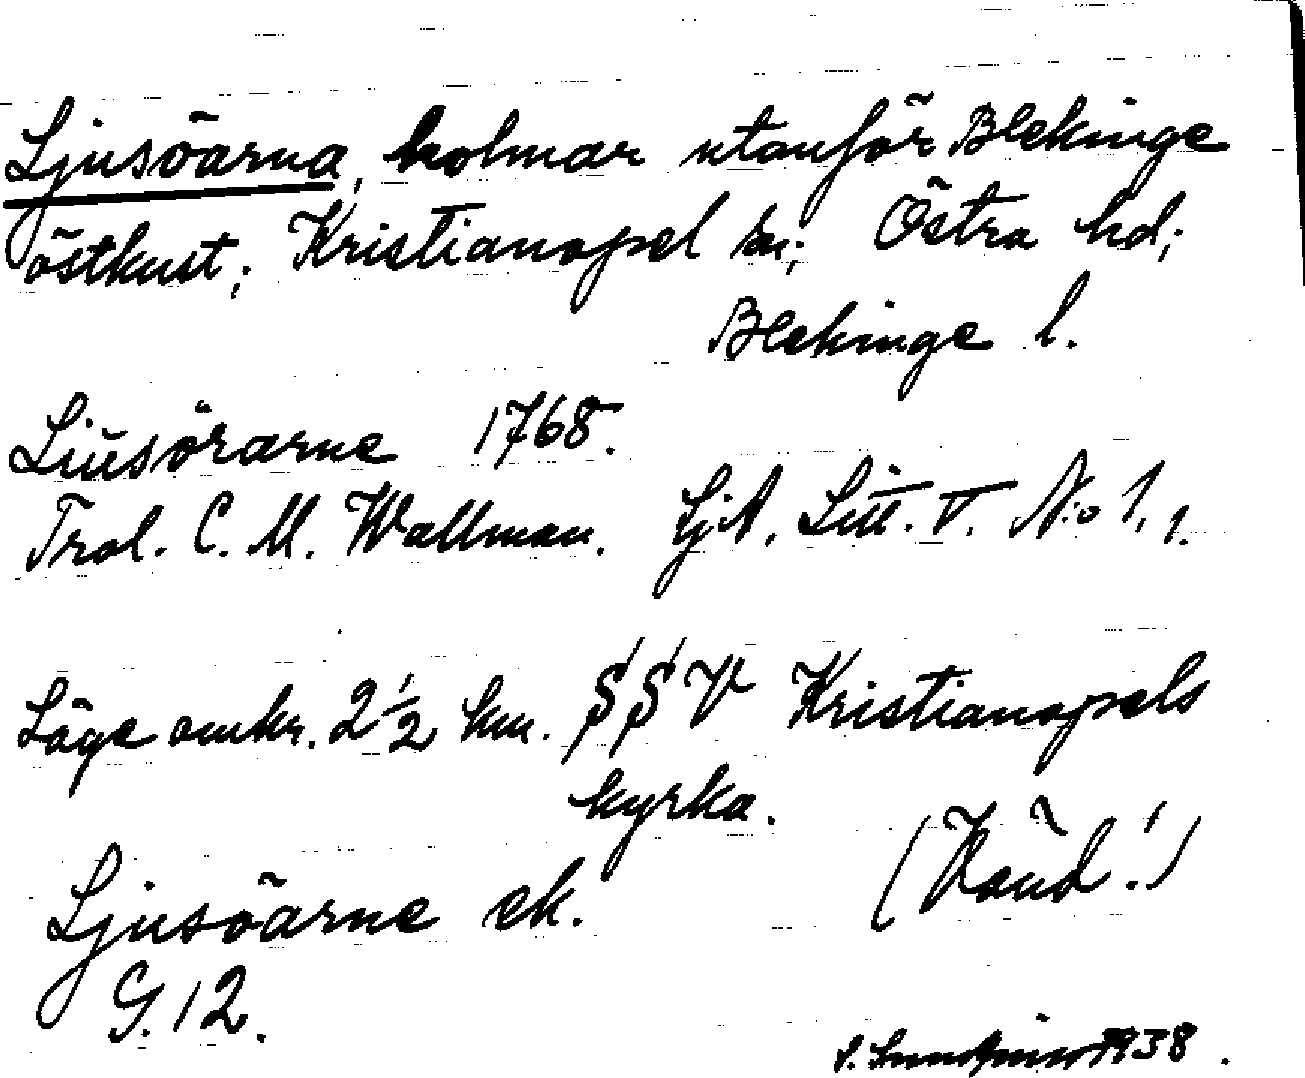 Ljusöarna, holmar utanför Blekinge
östkust; Kristianopel sn; Östra hd;
Blekinge l.
Liusörarne 1768.
Trol. C. M. Wallman. SjA. Litt. V. No 1, 1.
Läge omkr. 2 1/2 km. SSV Kristianopels
kyrka.
(Känd!)
Ljusöarne ek.
G. 12.
1938.